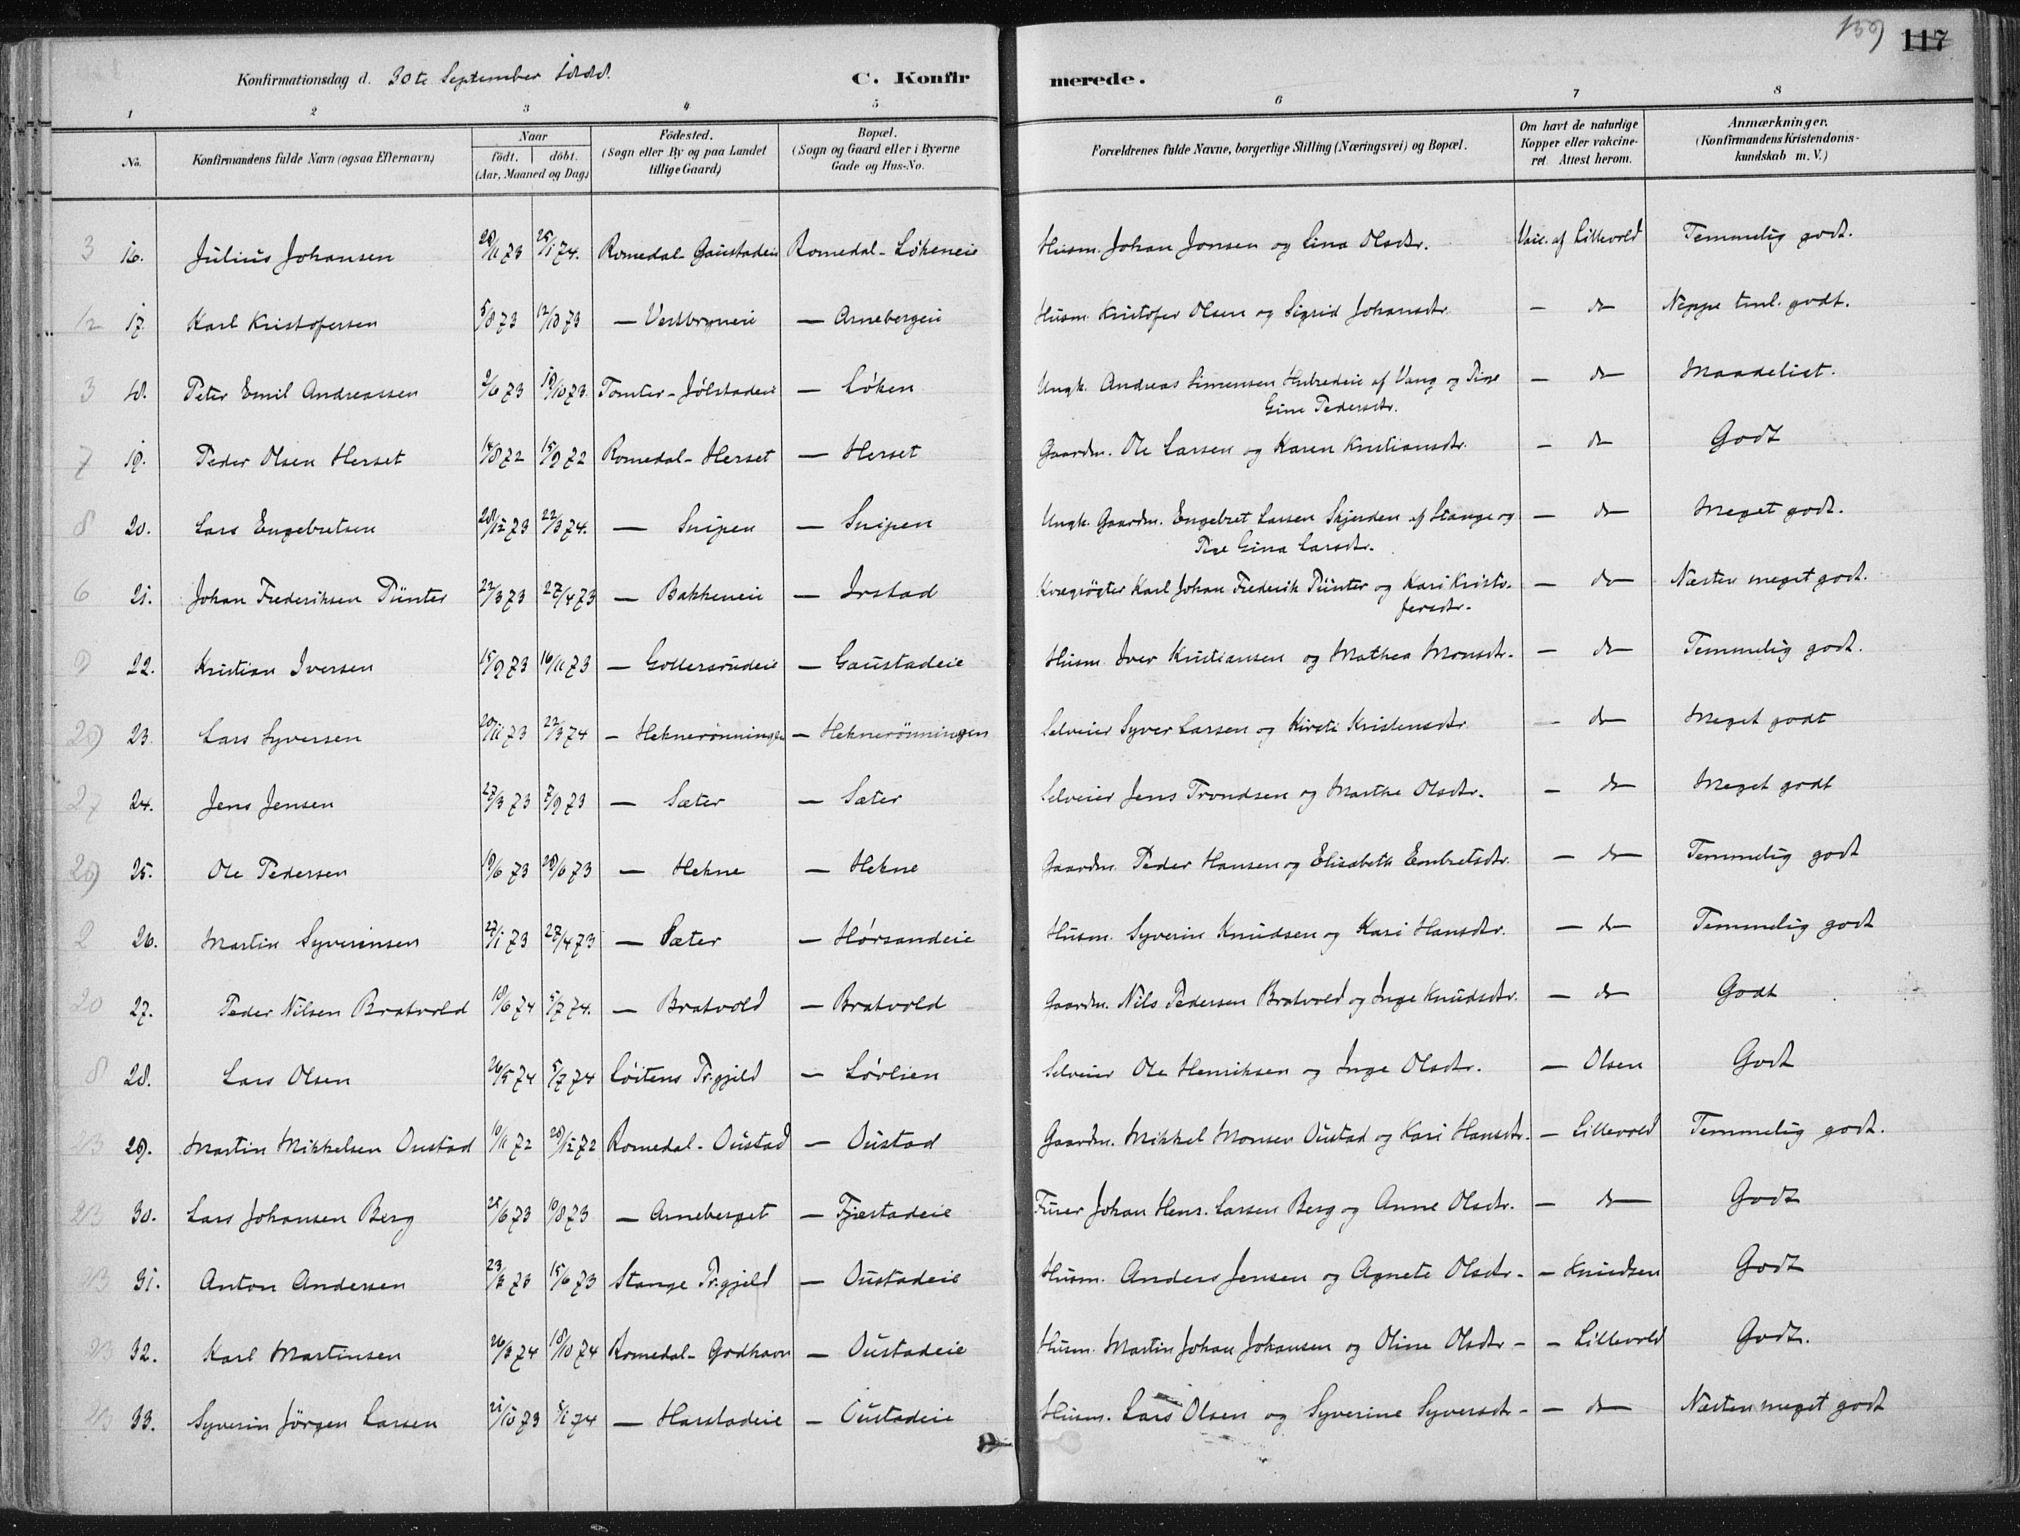 139) 117
Konfirmationsdag d. 30te September 1888. C. Konfir merede.
1 2 3 4 5 6 7 8
No. Konfirmandens fulde Navn (ogsaa Efternavn) Naar födt. döbt. (Aar, Maaned og Dag) Födested. (Sogn eller By og paa Landet tillige Gaard) Bopæl. (Sogn og Gaard eller i Byerne Gade og Hus-No. Forældrenes fulde Navne, borgerlige Stilling (Næringsvei) og Bopæl. Om havt de naturlige Kopper eller vakcineret. Attest herom. Anmærkninger. (Konfirmandens Kristendomskundskab m. V.)
3 16. Julius Johansen 20/11 73 25/1 74. Romedal - Gaustadeie Romedal - Løkeneie Husm. Johan Jonsen og Lina Olsdtr. Vaic. af Lillevold Temmelig godt.
1/2 17. Karl Kristofersen 5/8 73 12/10 73 — Vestbyneie — Arnebergeie Husm. Kristofer Olsen og Sigrid Johansdtr. — do Neppe tml. godt.
3 18. Peter Emil Andreassen 2/6 73 19/10 73. Tomter - Jølstadeie — Løken Ungk. Andreas Simensen af Vang og Pige — do Maadelist.
Gine Pedersdtr.
7 19. Peder Olsen Herset 14/8 72 15/9 72 Romedal - Herset — Herset Gaardm. Ole Larsen og Karen Kristiansdtr. — do Godt
8 20. Lars Engebretsen 28/12 73 22/3 74. — Snipen — Snipen Ungk. Gaardm. Engebret Larsen Skjerden af Stange og — do Meget godt.
Pige Gina Larsdtr.
6 21. Johan Frederiksen Pünter 22/3 73 27/4 73 — Bakkeneie — Irstad Kvægrøgter Karl Johan Frederik Pünter og Kari Kristo- — do Næsten meget godt.
fersdtr.
9 22. Kristian Iversen 15/9 73 16/11 73 — Gollersrudeie — Gaustadeie Husm. Iver Kristiansen og Mathea Monsdtr. — do Temmelig godt.
29) 23. Lars Syversen 20/11 73 22/3 74 — Heknerönningen — Heknerönningen Selveier Syver Larsen og Kirsti Kristensdtr. — do Meget godt
27 24. Jens Jensen 27/3 73 7/9 73 — Sæter — Sæter Selveier Jens Trondsen og Marthe Olsdtr. — do Meget godt
29) 25. Ole Pedersen 19/6 73 29/6 73 — Hekne — Hekne Gaardm. Peder Hansen og Elisabeth Embretsdtr. — do Temmelig godt
2 26. Martin Syverinsen 27/1 73 27/4 73 — Sæter — Hørsandeie Husm. Syverin Knudsen og Kari Hansdtr. — do Temmelig godt
20 27. Peder Nilsen Bratvold 10/6 74 5/7 74. — Bratvold — Bratvold Gaardm. Nils Pedersen Bratvold og Inge Knudsdtr. — do Godt
8 28. Lars Olsen 26/5 74 5/7 74 Löitens Pr.gjeld — Løvlien Selveier Ole Henriksen og Inge Olsdtr. — Olsen Godt
23 29. Martin Mikkelsen Oustad 10/11 72 29/12 72 Romedal - Oustad — Oustad Gaardm. Mikkel Monsen Oustad og Kari Hansdtr. — Lillevold Temmelig godt.
23 30. Lars Johansen Berg 25/6 73 10/8 73 — Arneberget — Fjæstadeie Furer Johan Henr. Larsen Berg og Anne Olsdtr. — do Godt
23 31. Anton Andersen 23/3 73 15/6 73 Stange Pr.gjeld — Oustadeie Husm. Anders Jensen og Agnete Olsdtr. — Knudsen Godt
23 32. Karl Martinsen 26/3 74 18/10 74 Romedal - Godhavn — Oustadeie Husm. Martin Johan Johansen og Oline Olsdtr — Lillevold Godt.
23 33. Syverin Jörgen Larsen 21/10 73 5/1 74 — Harstadeie — Oustadeie Husm. Lars Olsen og Syverine Syversdtr — do Næsten meget godt